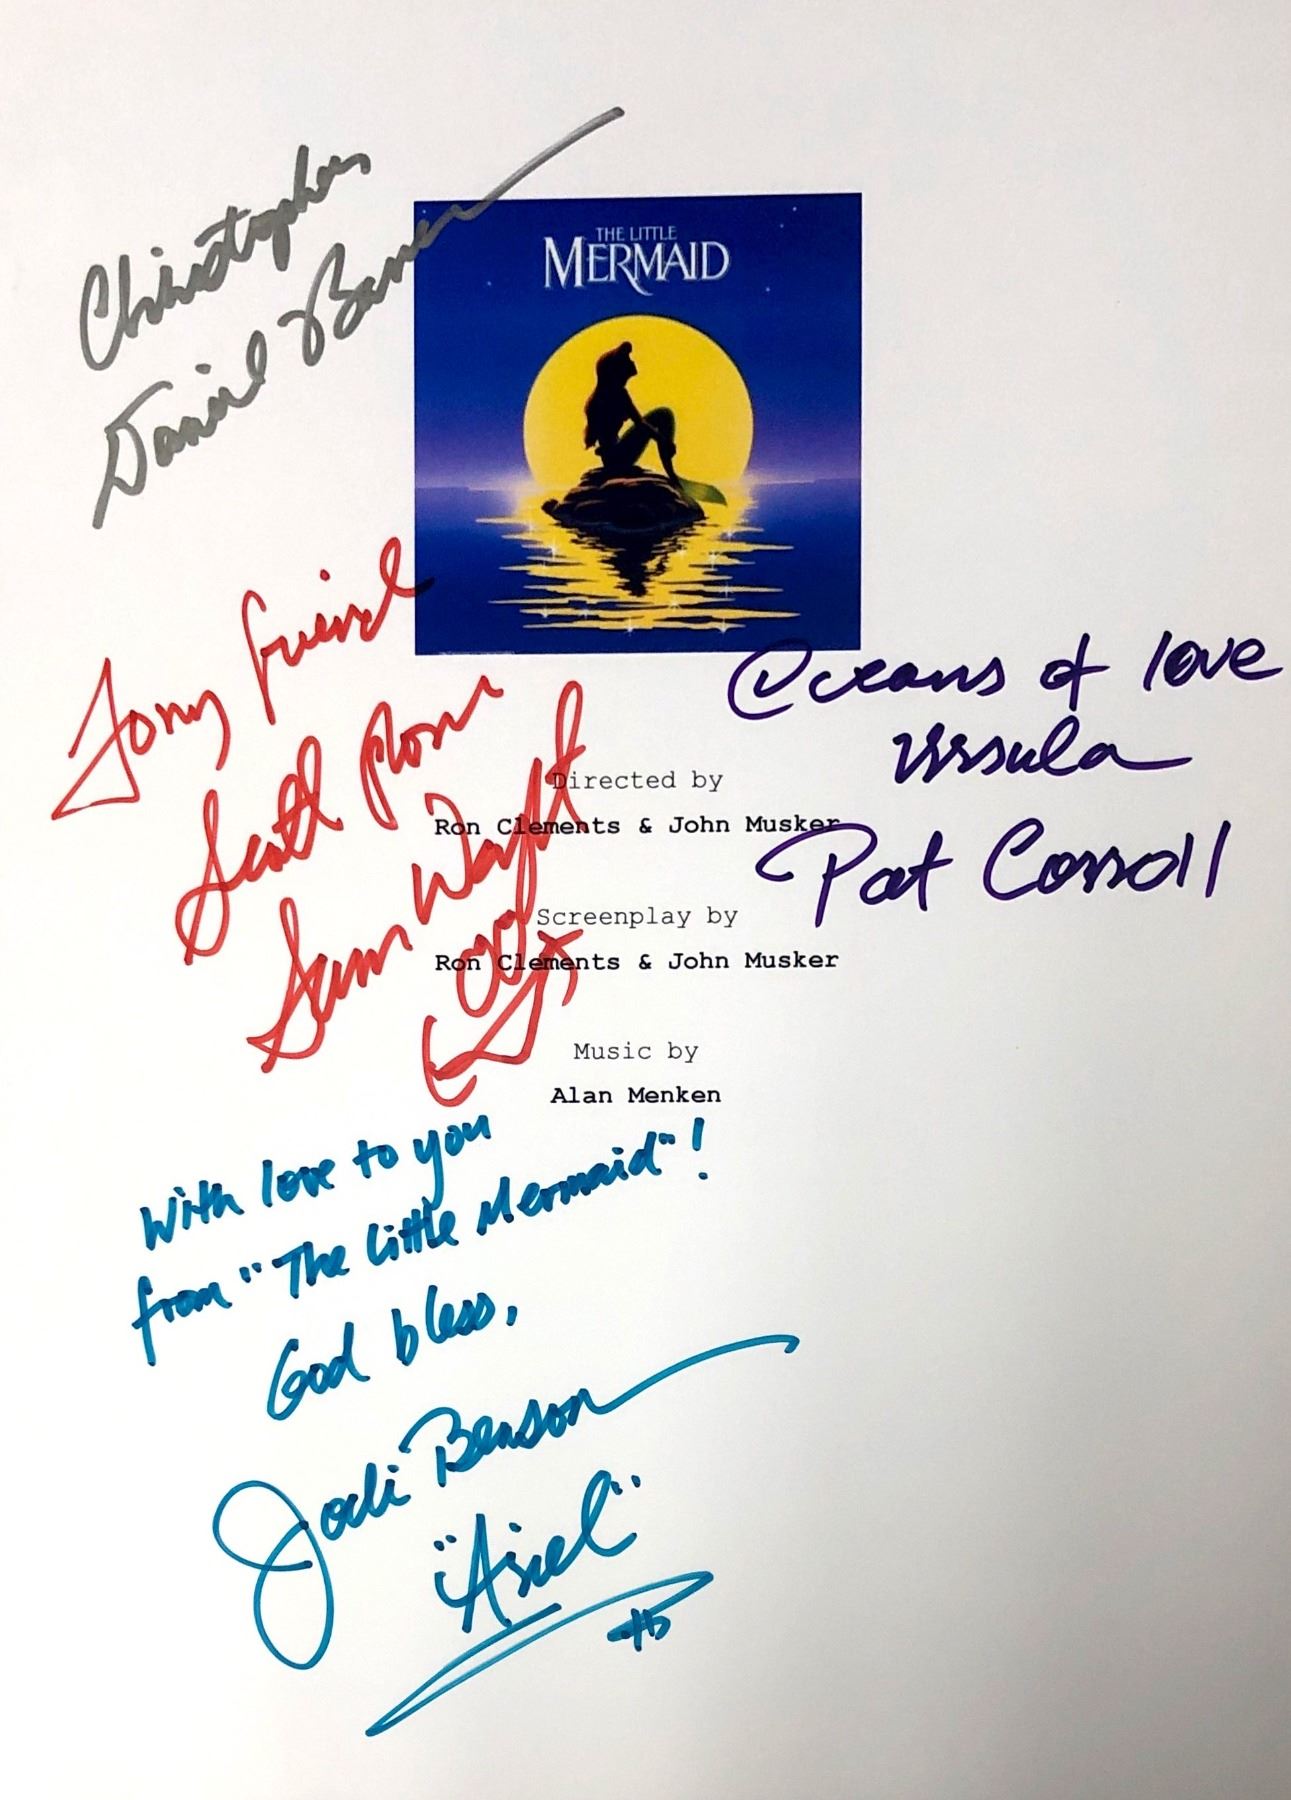 Christopher
Daniel Barnes
THE LITTLE
MERMAID
To my friend
Scott
Sam Wright
Oceans of love
Ursula
Pat Carroll
Directed by
Ron Clements & John Musker
Screenplay by
Ron Clements & John Musker
Music by
Alan Menken
With love to you
from "The Little Mermaid"!
God bless,
Jodi Benson
"Ariel"